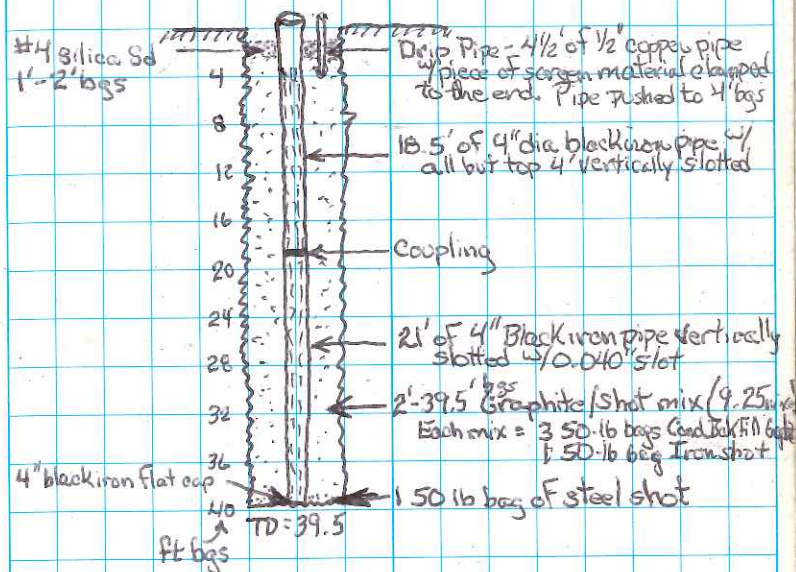 #4 Silica Sd
1'-2' bgs
4
8
12
16
20
24
28
32
36
40
4" black iron flat cap
ft bgs
TD = 39.5
Drip Pipe - 4 1/2' of 1/2" copper pipe
w/ piece of screen material clamped
to the end. Pipe pushed to 4' bgs
18.5' of 4" dia black iron pipe w/
all but top 4' vertically slotted
Coupling
21' of 4" Black iron pipe vertically
slotted w/ 0.040" slot
2'-39.5' bgs Graphite/shot mix (9.25
Each mix = 3 50-lb bags Cond. Back Fill
1 50-lb bag Iron shot
1 50 lb bag of steel shot